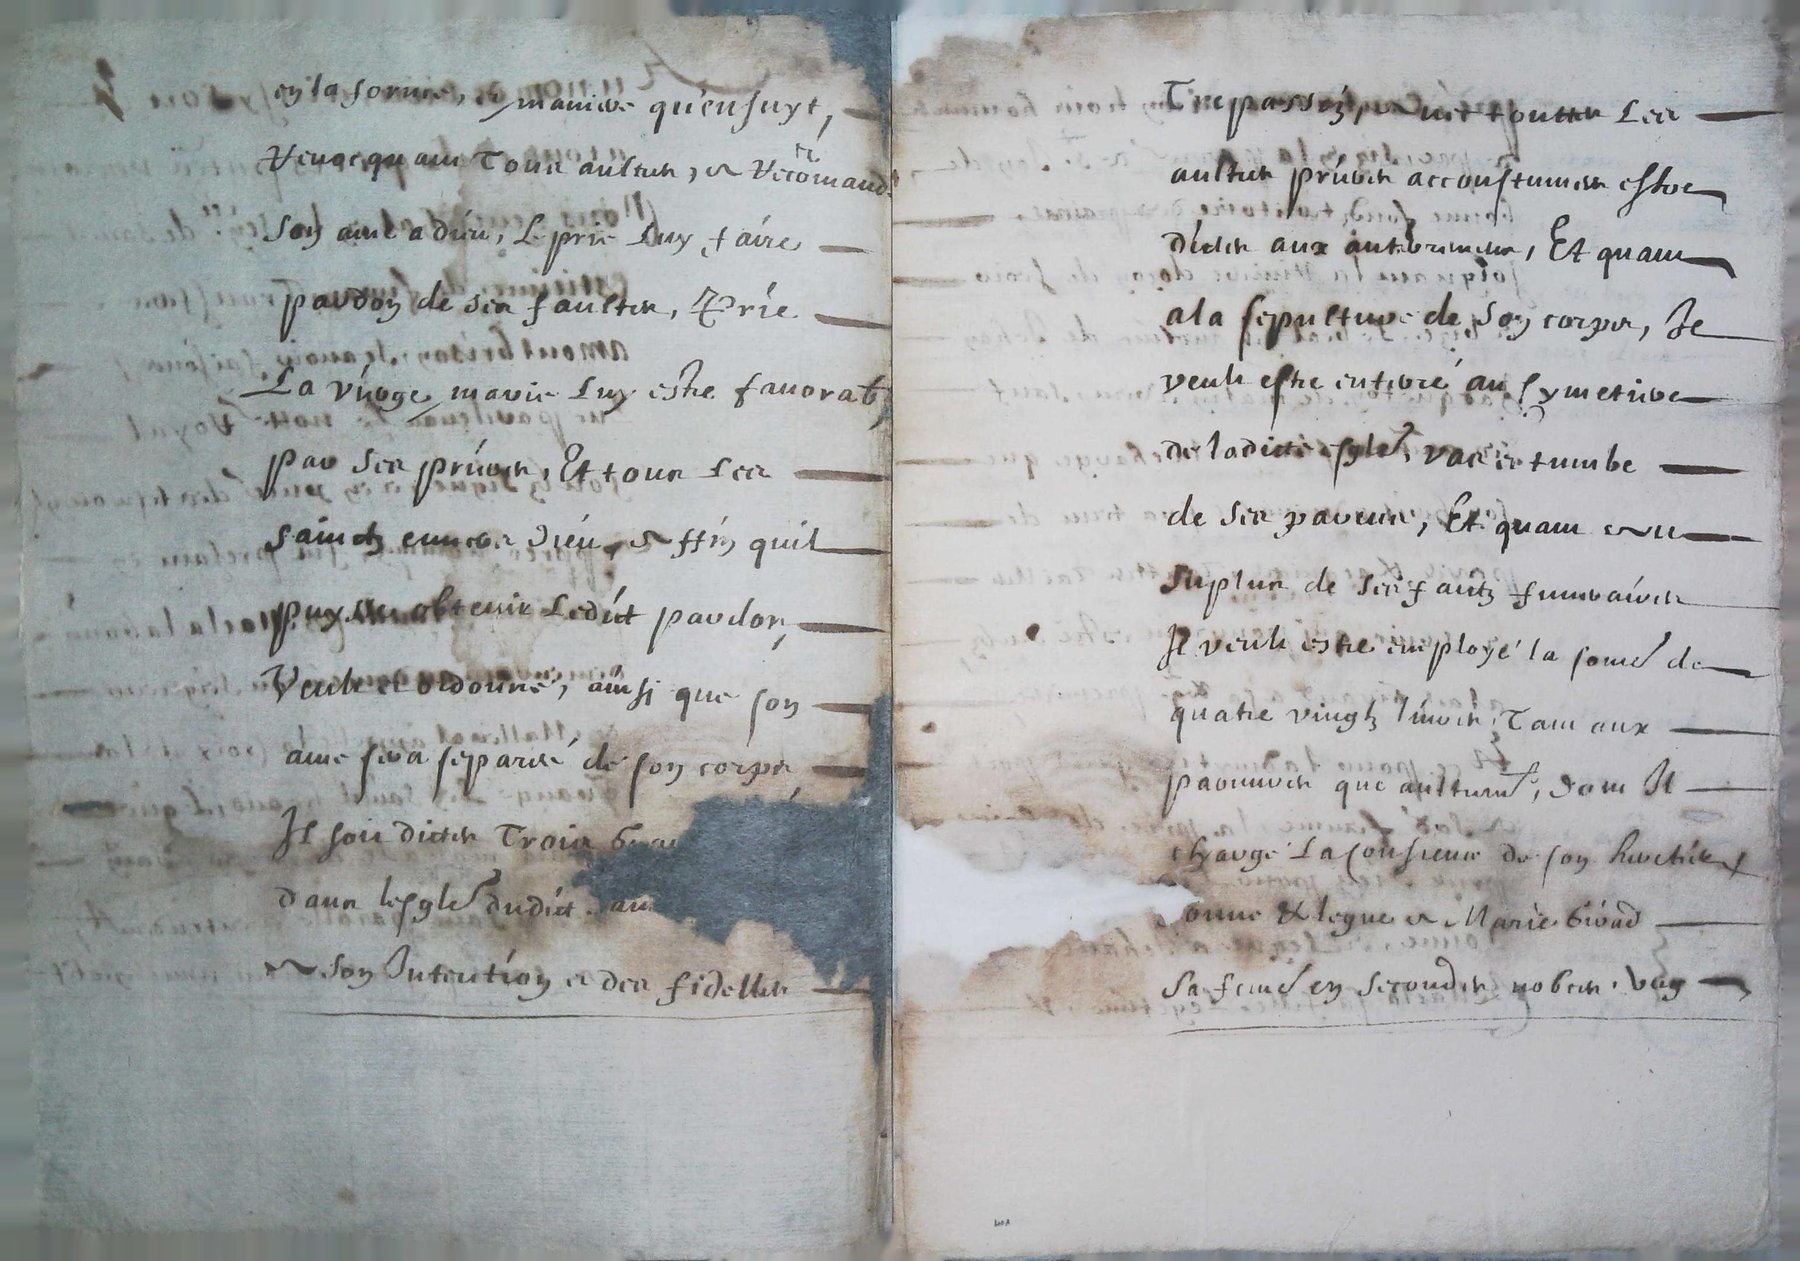 en la forme, et maniere qu'ensuyt,
Revocquant Tous aultres, et Recomand
son ame a dieu, Le prie Luy faire
pardon de ses faultes, Prie
La vierge marie Luy estre favorab,
par ses prieres, Et tous Les
sainctz envers dieu, affin quil
puysse obtenir Ledict pardon,
Veult et ordonne, ainsi que son
ame sera separée de son corps
Il soit dictes Trois
dans lesglē dudict
a son Intention et des fidelles
Trepassés, avec touttes Les
aultres prieres accoustumées estre
dictes aux anterrements, Et quant
a la sepulture de son corps, Il
veult estre enterré au symetiere
de ladicte esglē, vas et tumbe
de ses parens, Et quant au
suplus de ses faictz funeraires
Il veult estre employé la somē de
quatre vingtz livres, Tant aux
paouvres que aultremē, dont Il
charge La consience de son heretier
donne & legue a Marie Girād
sa femē en secondes nobces, ung